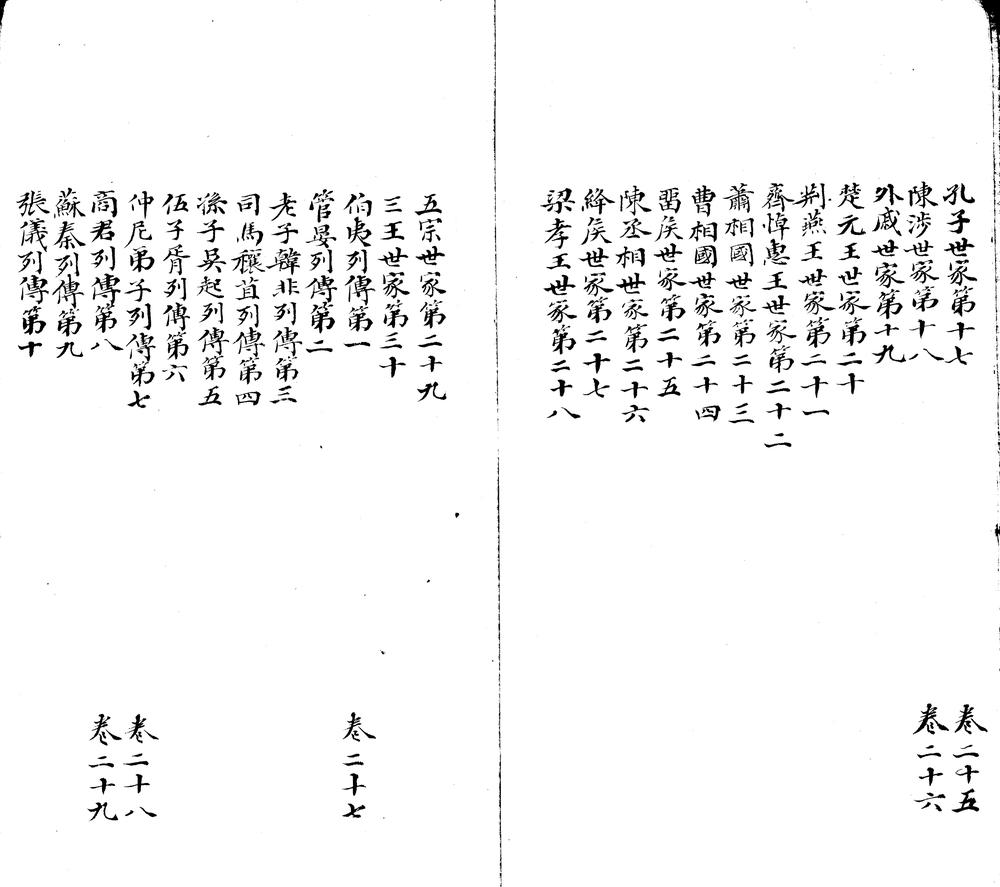 孔子世家第十七 卷二十五
陳涉世家第十八 卷二十六
外戚世家第十九
楚元王世家第二十
荆燕王世家第二十一
齊悼惠王世家第二十二
蕭相國世家第二十三
曹相國世家第二十四
畱侯世家第二十五
陳丞相世家第二十六
絳侯世家第二十七
梁孝王世家第二十八
五宗世家第二十九
三王世家第三十
伯夷列傳第一 卷二十七
管晏列傳第二
老子韓非列傳第三
司馬穰苴列傳第四
孫子吳起列傳第五
伍子胥列傳第六
仲尼弟子列傳第七 卷二十八
商君列傳第八 卷二十九
蘇秦列傳第九
張儀列傳第十